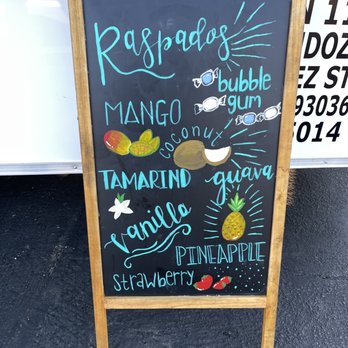 Raspados
bubble
gum
MANGO
coconut
TAMARIND
guava
vanilla
PINEAPPLE
strawberry
N 11
DOZ
EZ ST
93036
5014